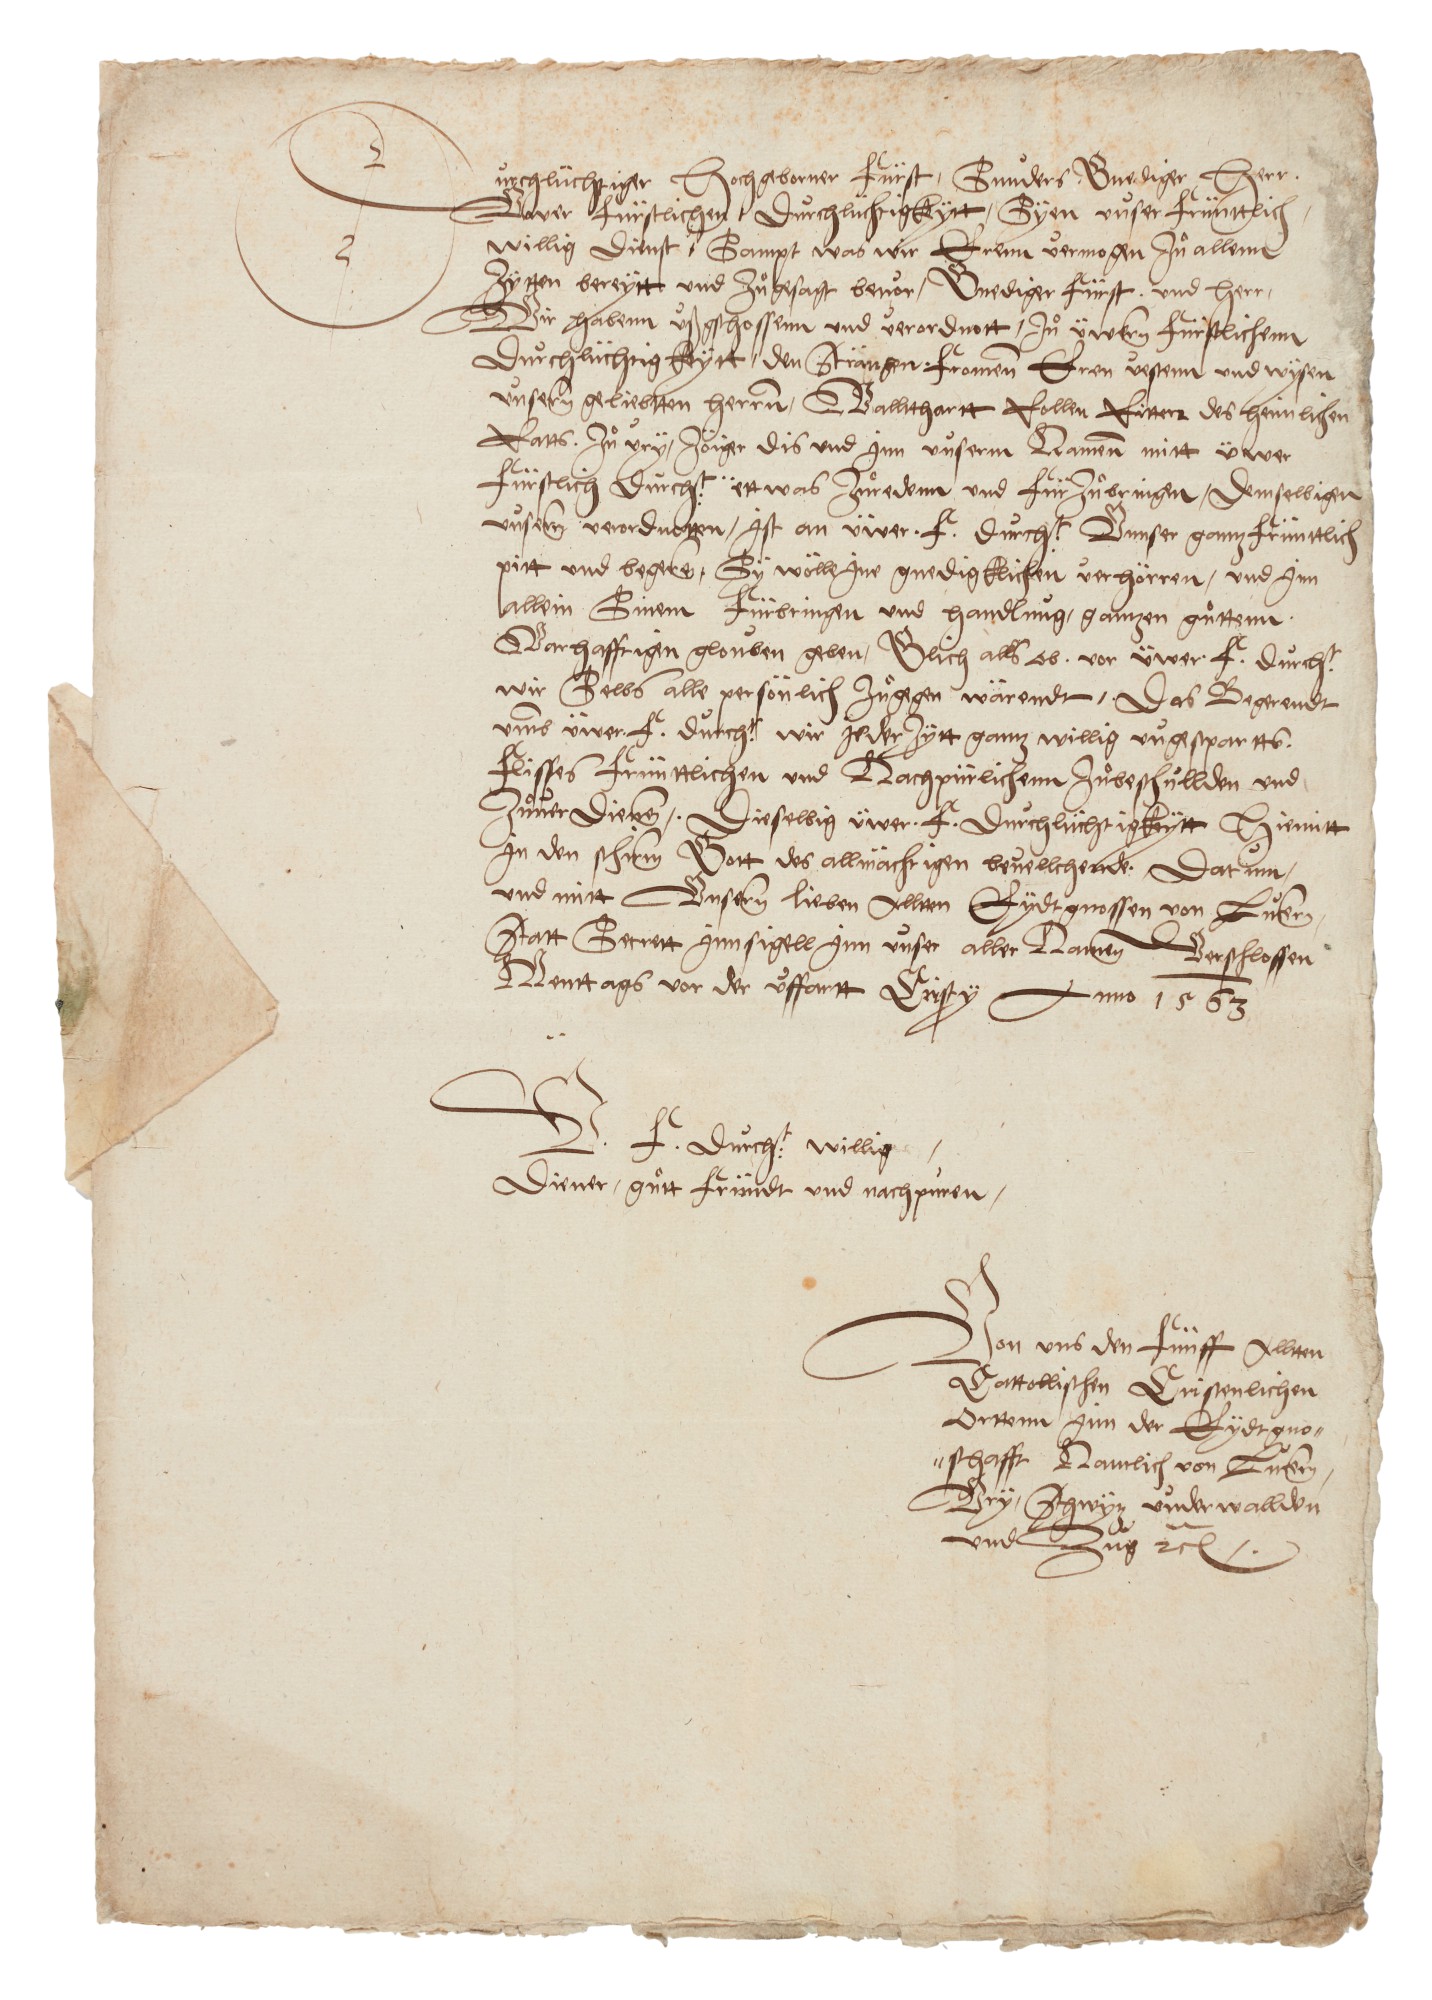 Durchlüchtiger Hochgeborner Fürst, Sunders Gnediger Herr.
Uwer Fürstlichen Durchlüchtigkeytt, Syen unser Früntlich,
willig dienst, Sampt was wir Eren vermogen Zů allenn
Zytten bereytt und Zůgesagt bevor, Gnediger Fürst. und Herr,
Wir habenn ußgschossenn und verordnott, Zů üwern Fürstlichenn
Durchlüchtigkeytt, den Strängen. fromen Eren vestenn und wysen
unsern geliebtten herrn, Wallthartt Rollen Ritter des heimlichen
Ratts. Zů Ury, Zöiger dis und Inn unserm Namen mitt üwer
Fürstlich Durchlt. ettwas Zůredenn und FürZůbringen, Demselbigen
unserm verordnotten, Ist an üwer. F. Durchlt. Unnser gantz früntlich
pitt und begere, Sy wölle Ine gnedigklichen verhörren, und Inn
allein Sinem Fürbringen und handlung, gantzen gůttenn.
Warhafftigen glouben geben, Glich alls ob. vor üwer F. Durchlt.
wir Selbs alle persönlich Zůgegen wärendt, Das Begerendt
umb üwer. F. Durchlt. wir jeder Zytt gantz willig ungespartts.
Flisses Früntlichen und Nachpürlichenn Zůbeschullden und
Zůverdienen,. Dieselbig üwer. F. Durchlüchtigkeytt Hiemitt
In den schirm Gott des allmächtigen bevellchende. Datum,
und mitt Unsern lieben Alltten Eydtgnossen von Lutzern,
Statt Secrett Innsigell Inn unser aller Namen Verschlossen
Menttags vor der Uffartt Cristy Anno 1563

U. F. Durchlt. willig,
Diener, gůtt fründt und nachpuren,
Von uns den Fünff Alltten
Cattollischen Cristenlichen
Ortten Inn der Eydtgno-
schafft Namlich von Lutzern,
Ury, Schwytz underwallden
und Zug etc.